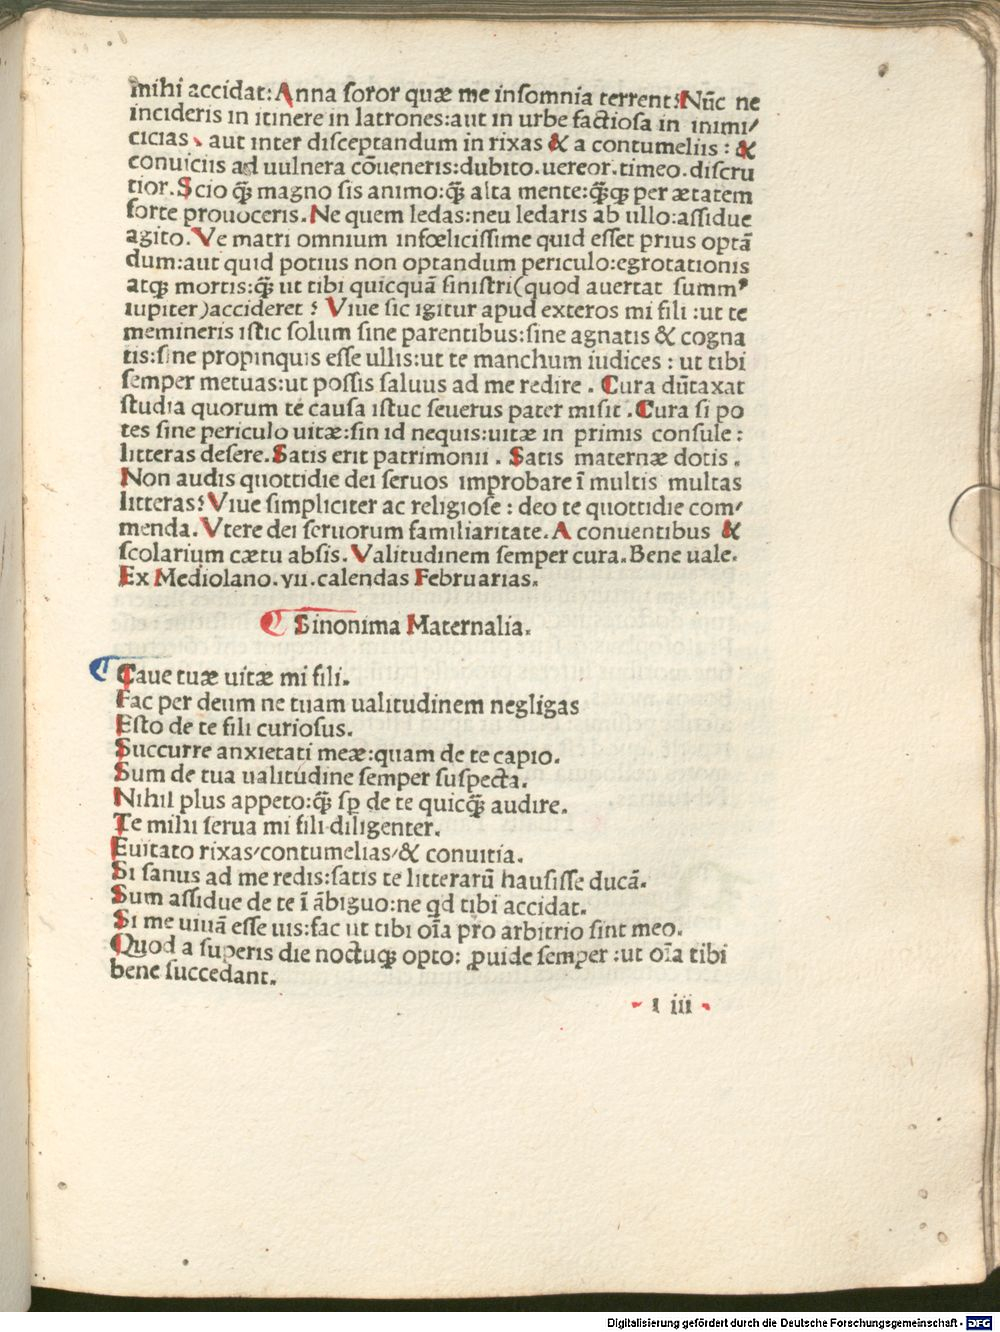 mihi accidat: Anna soror quæ me insomnia terrent? Nūc ne
incideris in itinere in latrones: aut in urbe factiosa in inimi/
cicias, aut inter disceptandum in rixas & a contumeliis: &
conuiciis ad uulnera cōueneris: dubito. uereor. timeo. discru
tior. Scio q̄ꝫ magno sis animo: q̄ꝫ alta mente: q̄ꝫqꝫ per ætatem
forte prouoceris. Ne quem ledas: neu ledaris ab ullo: assidue
agito. Ve matri omnium infœlicissime quid esset prius optā
dum: aut quid potius non optandum periculo: egrotationis
atqꝫ mortis: q̄ꝫ ut tibi quicquā sinistri (quod auertat summꝰ
iupiter) accideret? Viue sic igitur apud exteros mi fili: ut te
memineris istic solum sine parentibus: sine agnatis & cogna
tis: sine propinquis esse ullis: ut te manchum iudices: ut tibi
semper metuas: ut possis saluus ad me redire. Cura dūtaxat
studia quorum te causa istuc seuerus pater misit. Cura si po
tes sine periculo uitæ: sin id nequis: uitæ in primis consule:
litteras desere. Satis erit patrimonii. Satis maternæ dotis.
Non audis quottidie dei seruos improbare ī multis multas
litteras? Viue simpliciter ac religiose: deo te quottidie com/
menda. Vtere dei seruorum familiaritate. A conuentibus &
scolarium cætu absis. Valitudinem semper cura. Bene uale.
Ex Mediolano. vii. calendas Februarias.
Sinonima Maternalia.
Caue tuæ uitæ mi fili.
Fac per deum ne tuam ualitudinem negligas
Esto de te fili curiosus.
Succurre anxietati meæ: quam de te capio.
Sum de tua ualitudine semper suspecta.
Nihil plus appeto: q̄ꝫ sꝑ de te quicq̄ꝫ audire.
Te mihi serua mi fili diligenter.
Euitato rixas/contumelias/& conuitia.
Si sanus ad me redis: satis te litterarū hausisse ducā.
Sum assidue de te ī ābiguo: ne qd tibi accidat.
Si me uiuā esse uis: fac ut tibi oīa pro arbitrio sint meo.
Quod a superis die noctuqꝫ opto: ꝓuide semper: ut oīa tibi
bene succedant.
l iii
Digitalisierung gefördert durch die Deutsche Forschungsgemeinschaft - DFG